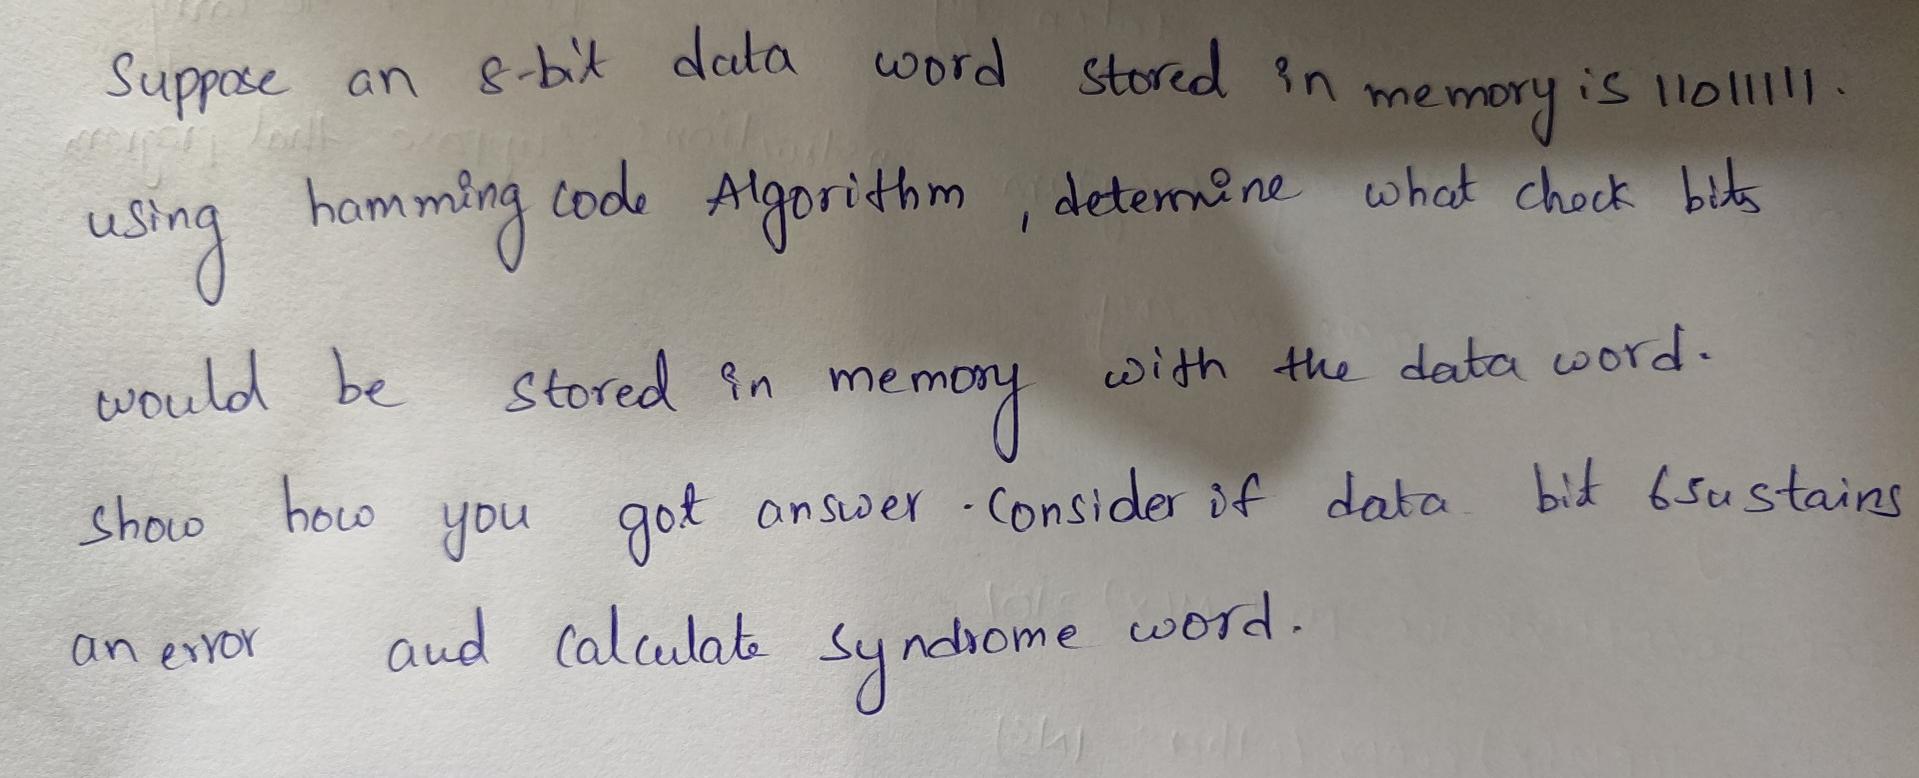 Suppose an 8-bit data word stored in memory is 11011111.
using hamming code Algorithm, determine what check bits
would be stored in memory with the data word.
show how you got answer. Consider if data bit 6 sustains
an error and calculate syndrome word.